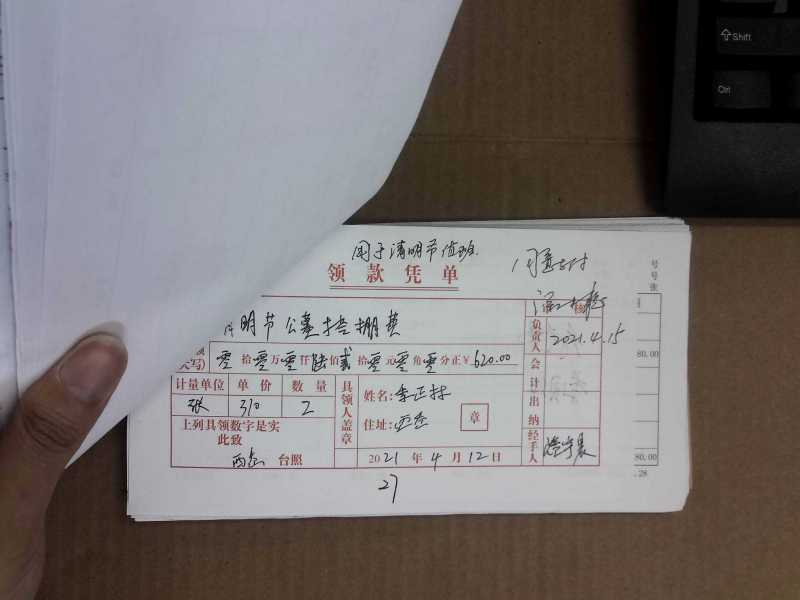 Shift
Ctrl
用于清明节值班
同意支付
领款凭单
号
号
张
明节公墓搭棚费
审核
负责人
2021.4.15
80.00
大写)
零拾零万零仟陆佰贰拾零元零角零分正¥620.00
会计
计量单位 单价 数量
张 310 2
具领人盖章
姓名:李正林
住址:
章
出纳
上列具领数字是实
此致
台照
2021年4月12日
经手人
80.00
.28
27